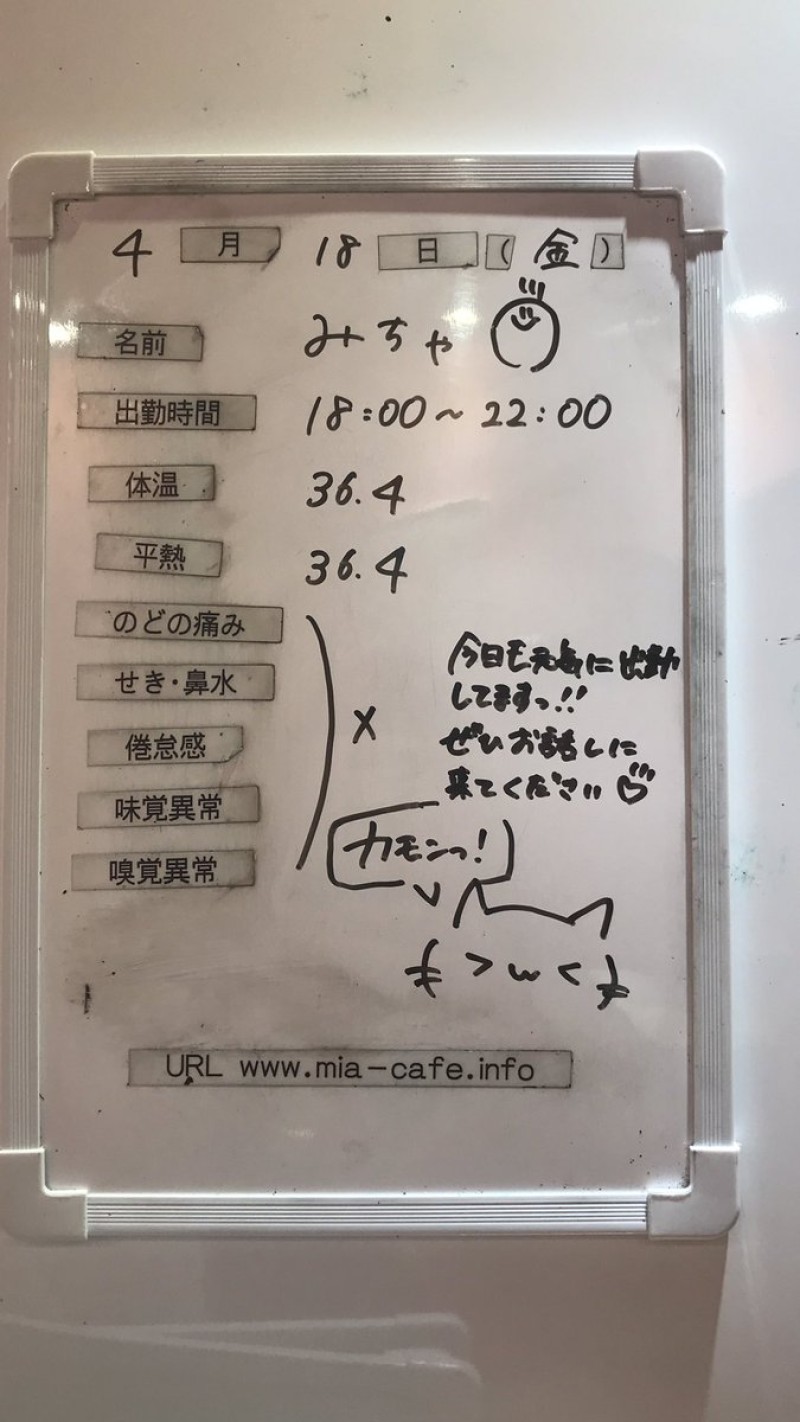 4 月 18 日 ( 金 )
名前 みちゃ
出勤時間 18:00~22:00
体温 36.4
平熱 36.4
のどの痛み
せき・鼻水
倦怠感
味覚異常
嗅覚異常
×
今日も元気に出勤
してますっ!!
ぜひお話しに
来てください
カモンっ!
URL www.mia-cafe.info